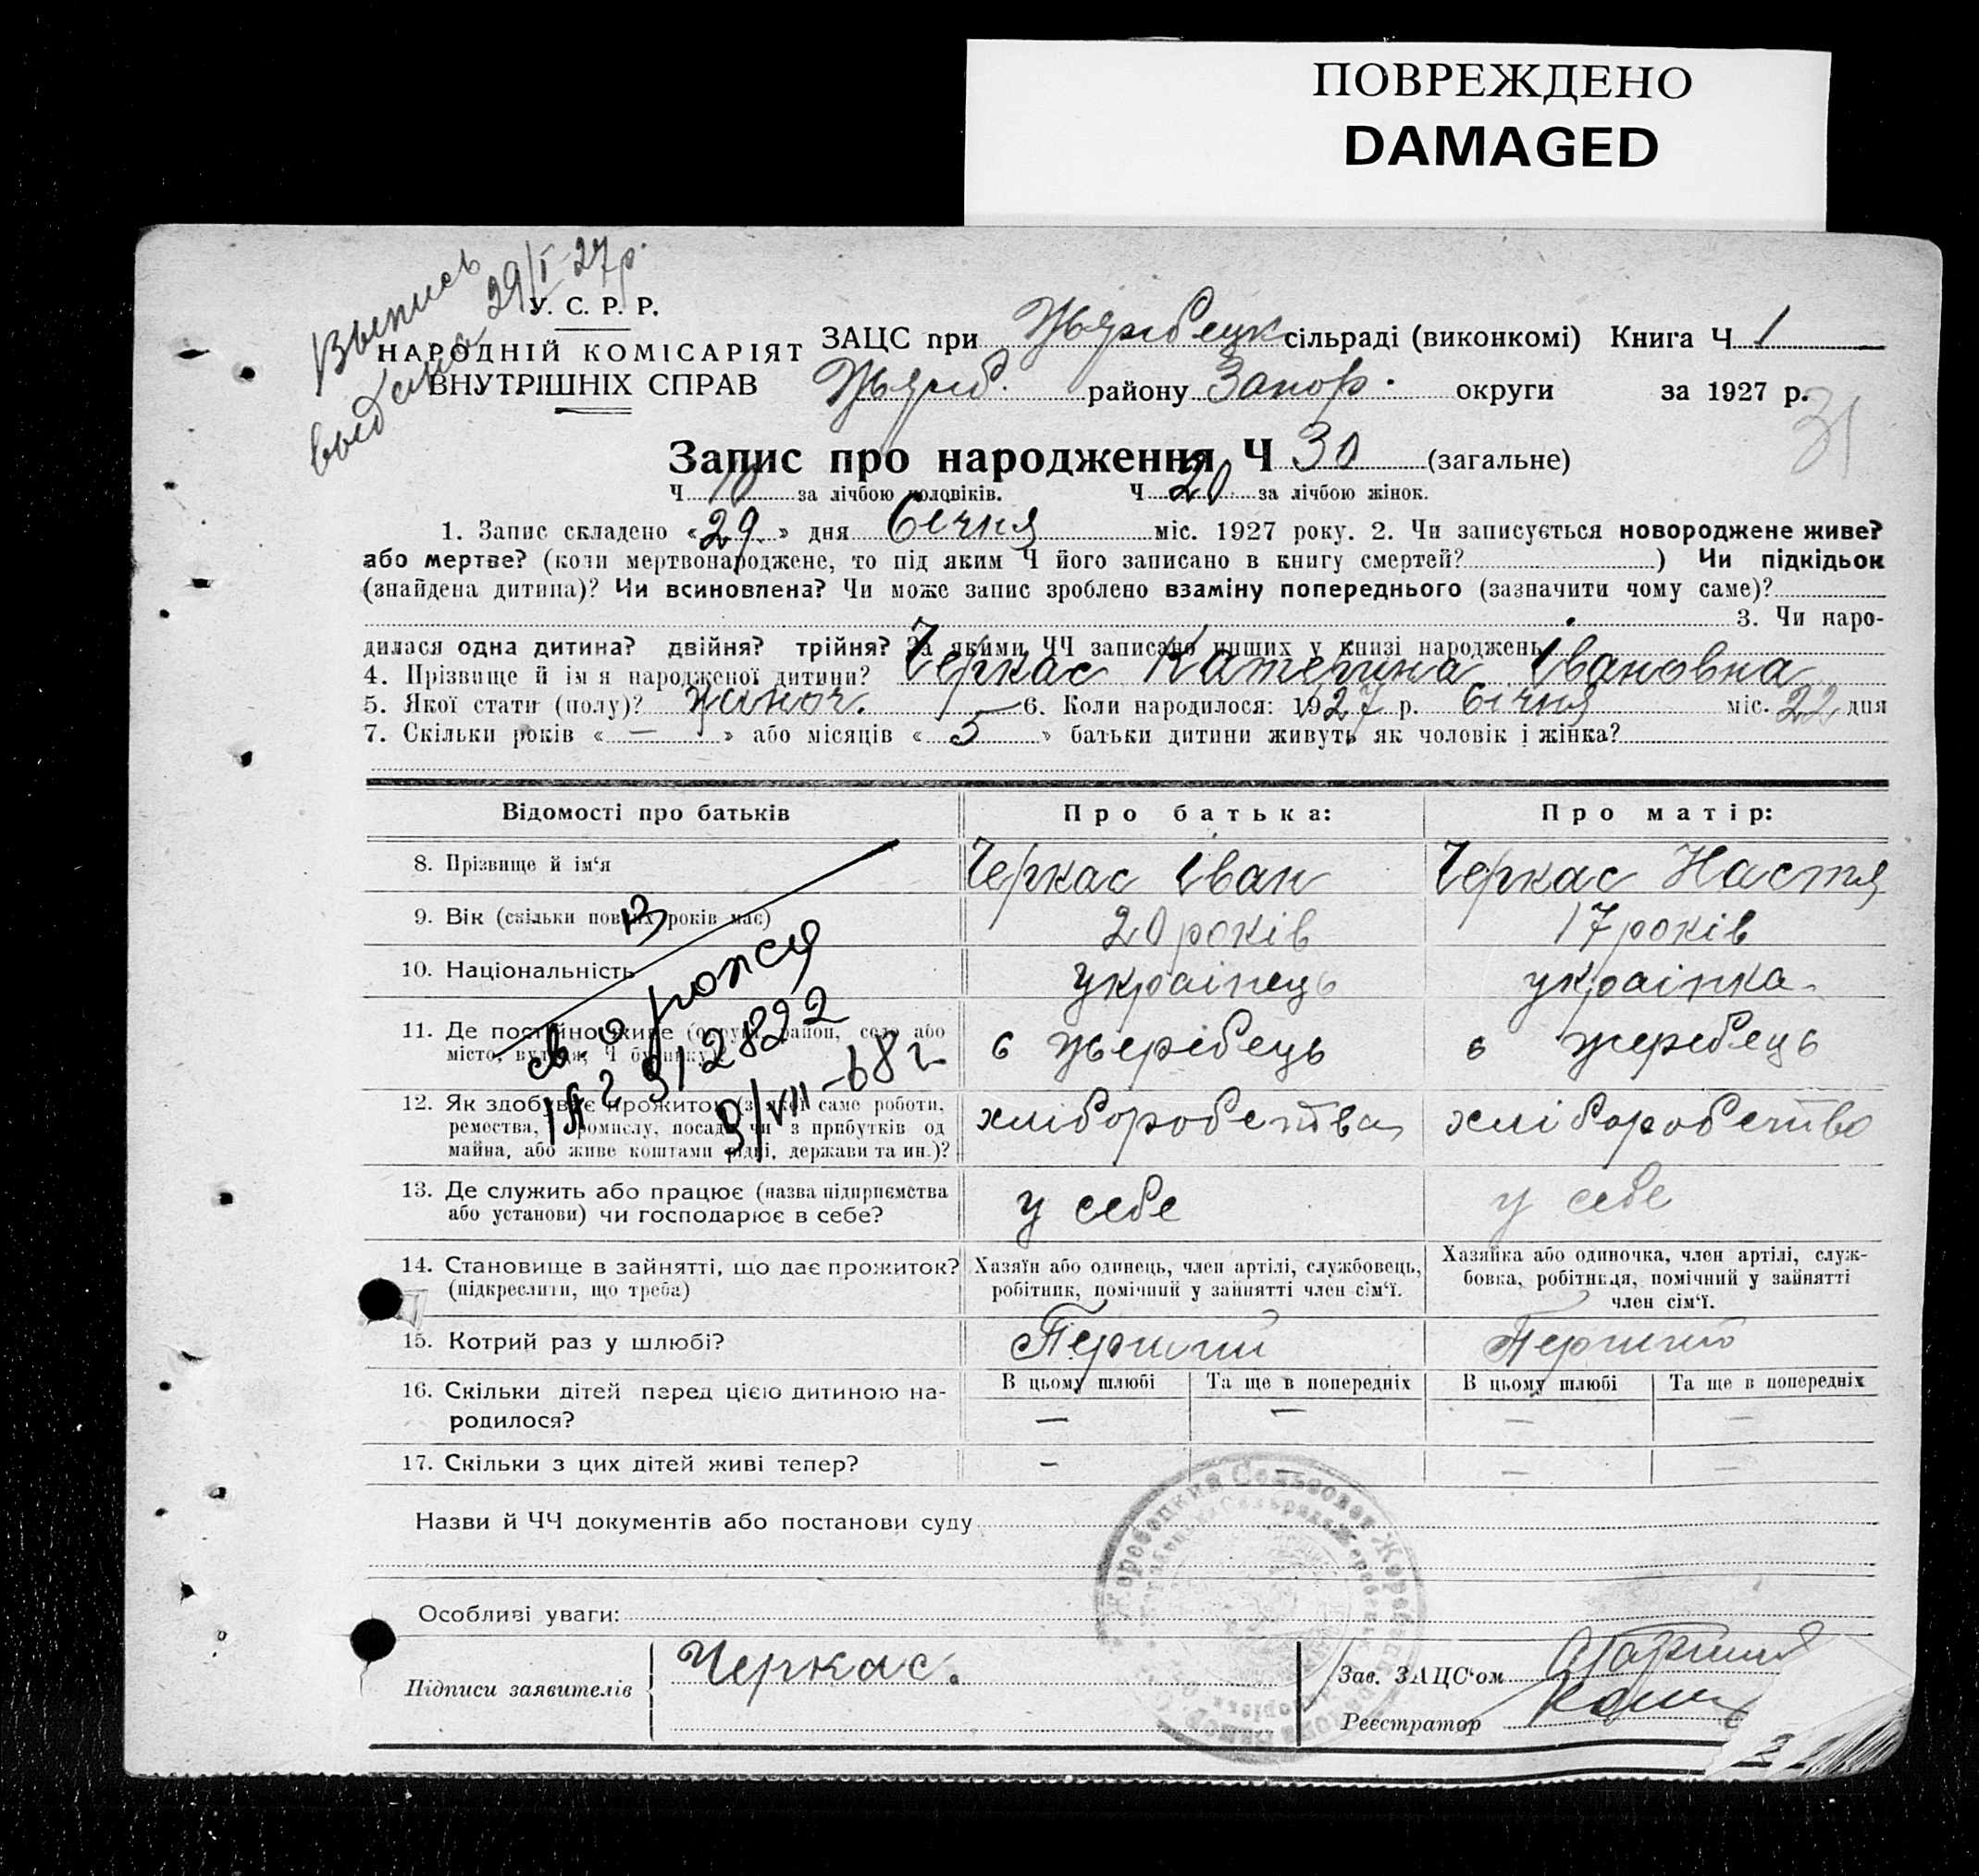 ПОВРЕЖДЕНО
DAMAGED
Выпись
выдана 29/I-27р.
У. С. Р. Р.
НАРОДНІЙ КОМІСАРІЯТ
ВНУТРІШНІХ СПРАВ
ЗАЦС при Жеребецк сільраді (виконкомі) Книга Ч 1
Жереб. району Запор. округи за 1927 р.
31
Запис про народження Ч 30 (загальне)
Ч 10 за лічбою чоловіків. Ч 20 за лічбою жінок.
1. Запис складено «29» дня Січня міс. 1927 року. 2. Чи записується новороджене живе?
або мертве? (коли мертвонароджене, то під яким Ч його записано в книгу смертей? ) Чи підкідьок
(знайдена дитина)? Чи всиновлена? Чи може запис зроблено взаміну попереднього (зазначити чому саме)?
3. Чи наро-
дилася одна дитина? двійня? трійня? За якими ЧЧ записано инших у книзі народжень
4. Прізвище й ім'я народженої дитини? Черкас Катерина Івановна
5. Якої стати (полу)? жіноч. 6. Коли народилося: 1927 р. Січня міс. 22 дня
7. Скільки років « — » або місяців « 5 » батьки дитини живуть як чоловік і жінка?
Відомості про батьків Про батька: Про матір:
8. Прізвище й ім'я Черкас Іван Черкас Настя
9. Вік (скільки повних років має) 20 років 17 років
10. Національність українець українка
11. Де постійно живе (округа, район, село або
місто, вулиця, Ч будинку) с Жеребець с Жеребець
12. Як здобуває прожиток (з якої саме роботи,
ремества, промислу, посади чи з прибутків од
майна, або живе коштами рідні, держави та ин.)? хліборобства хліборобство
13. Де служить або працює (назва підприємства
або установи) чи господарює в себе? у себе у себе
14. Становище в зайнятті, що дає прожиток?
(підкреслити, що треба)
Хазяїн або одинець, член артілі, службовець,
робітник, помічний у зайнятті член сім'ї.
Хазяйка або одиночка, член артілі, служ-
бовка, робітниця, помічний у зайнятті
член сім'ї.
15. Котрий раз у шлюбі? Перший Перший
16. Скільки дітей перед цією дитиною на-
родилося?
В цьому шлюбі Та ще в попередніх В цьому шлюбі Та ще в попередніх
— — — —
17. Скільки з цих дітей живі тепер? — — —
св. о рожся
912822
9/VII-68 г
Назви й ЧЧ документів або постанови суду
Особливі уваги:
Підписи заявителів Черкас.
Зав. ЗАЦС'ом
Реєстратор